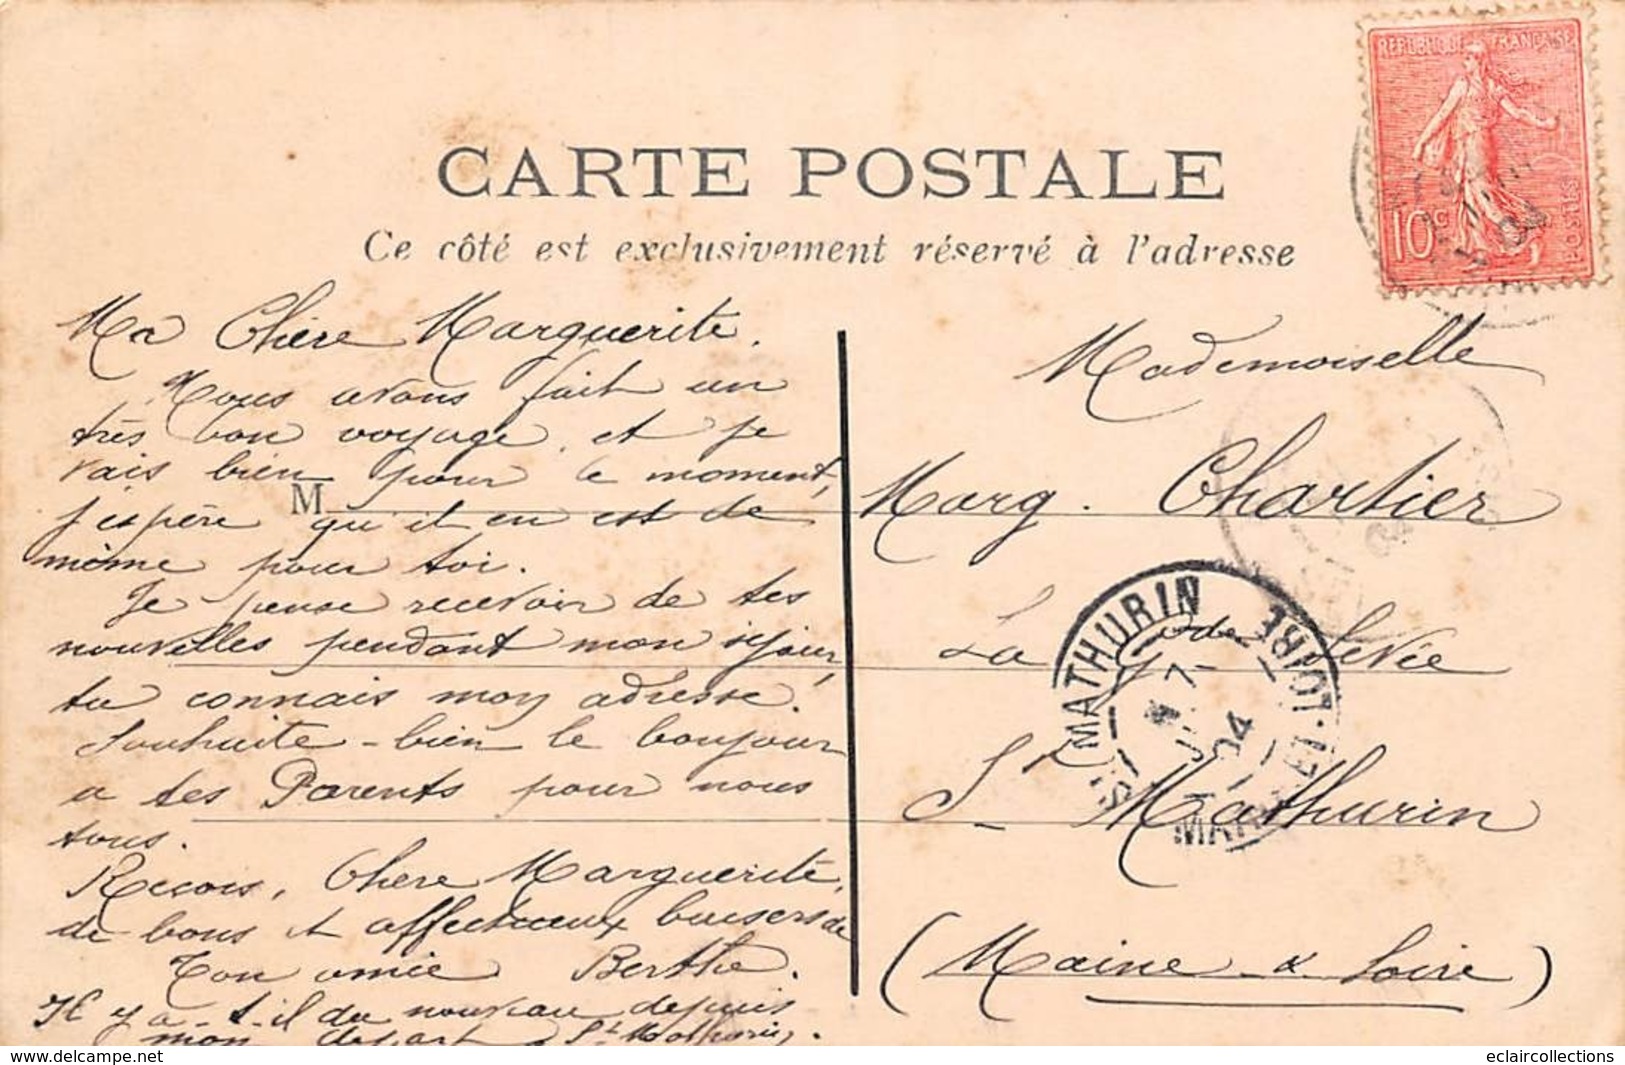 RÉPUBLIQUE FRANÇAISE
10c
POSTES
CARTE POSTALE
Ce côté est exclusivement réservé à l'adresse
Ma Chère Marguerite.
Nous avons fait un
très bon voyage, et je
vais bien pour le moment,
j'espère qu'il en est de
même pour toi.
Je pense recevoir de tes
nouvelles pendant mon séjour,
tu connais mon adresse.
Souhaite-bien le bonjour
a tes Parents pour nous
tous.
Reçois, Chère Marguerite,
de bons et affectueux baisers de
Ton amie Berthe.
Il y a-t-il du nouveau depuis
mon départ St Mathurin.
M
Mademoiselle
Marg. Chartier
La Gde Levée
St Mathurin
(Maine & Loire)
ST MATHURIN
7
04
MAINE-ET-LOIRE
delcampe.net
eclaircollections